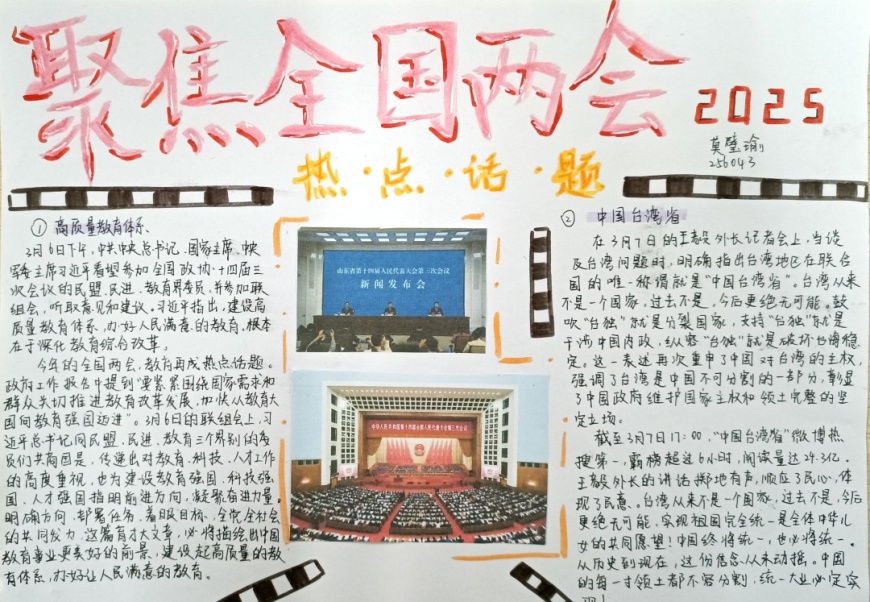 聚焦全国两会
2025
莫璧瑜
256043
热·点·话·题
① 高质量教育体系
3月6日下午,中共中央总书记、国家主席、中央
军委主席习近平看望参加全国政协十四届三
次会议的民盟、民进、教育界委员,并参加联
组会,听取意见和建议。习近平指出,建设高
质量教育体系,办好人民满意的教育,根本
在于深化教育综合改革。
今年的全国两会,教育再成热点话题。
政府工作报告中提到“要紧紧围绕国家需求和
群众关切推进教育改革发展,加快从教育大
国向教育强国迈进”。3月6日的联组会上,习
近平总书记同民盟、民进、教育三个界别的委
员们共商国是,传递出对教育、科技、人才工作
的高度重视,也为建设教育强国、科技强
国、人才强国指明前进方向,凝聚奋进力量。
明确方向,部署任务,着眼目标,全党全社会
的共同发力,这篇育才大文章,必将描绘出中国
教育事业更美好的前景,建设起高质量的教
育体系,办好让人民满意的教育。
山东省第十四届人民代表大会第三次会议
新闻发布会
中华人民共和国第十四届全国人民代表大会第三次会议
② 中国台湾省
在3月7日的王毅外长记者会上,当谈
及台湾问题时,明确指出台湾地区在联合
国的唯一称谓就是“中国台湾省”。台湾从来
不是一个国家,过去不是,今后更绝无可能。鼓
吹“台独”就是分裂国家,支持“台独”就是
干涉中国内政,纵容“台独”就是破坏台海稳
定。这一表述再次重申了中国对台湾的主权,
强调了台湾是中国不可分割的一部分,彰显
了中国政府维护国家主权和领土完整的坚
定立场。
截至3月7日17:00,“中国台湾省”微博热
搜第一,霸榜超过6小时,阅读量达24.3亿。
王毅外长的讲话掷地有声,顺应了民心,体
现了民意。台湾从来不是一个国家,过去不是,今后
更绝无可能,实现祖国完全统一是全体中华儿
女的共同愿望!中国终将统一,也必将统一。
从历史到现在,这份信念从未动摇。中国
的每一寸领土都不容分割,统一大业必定实
现!